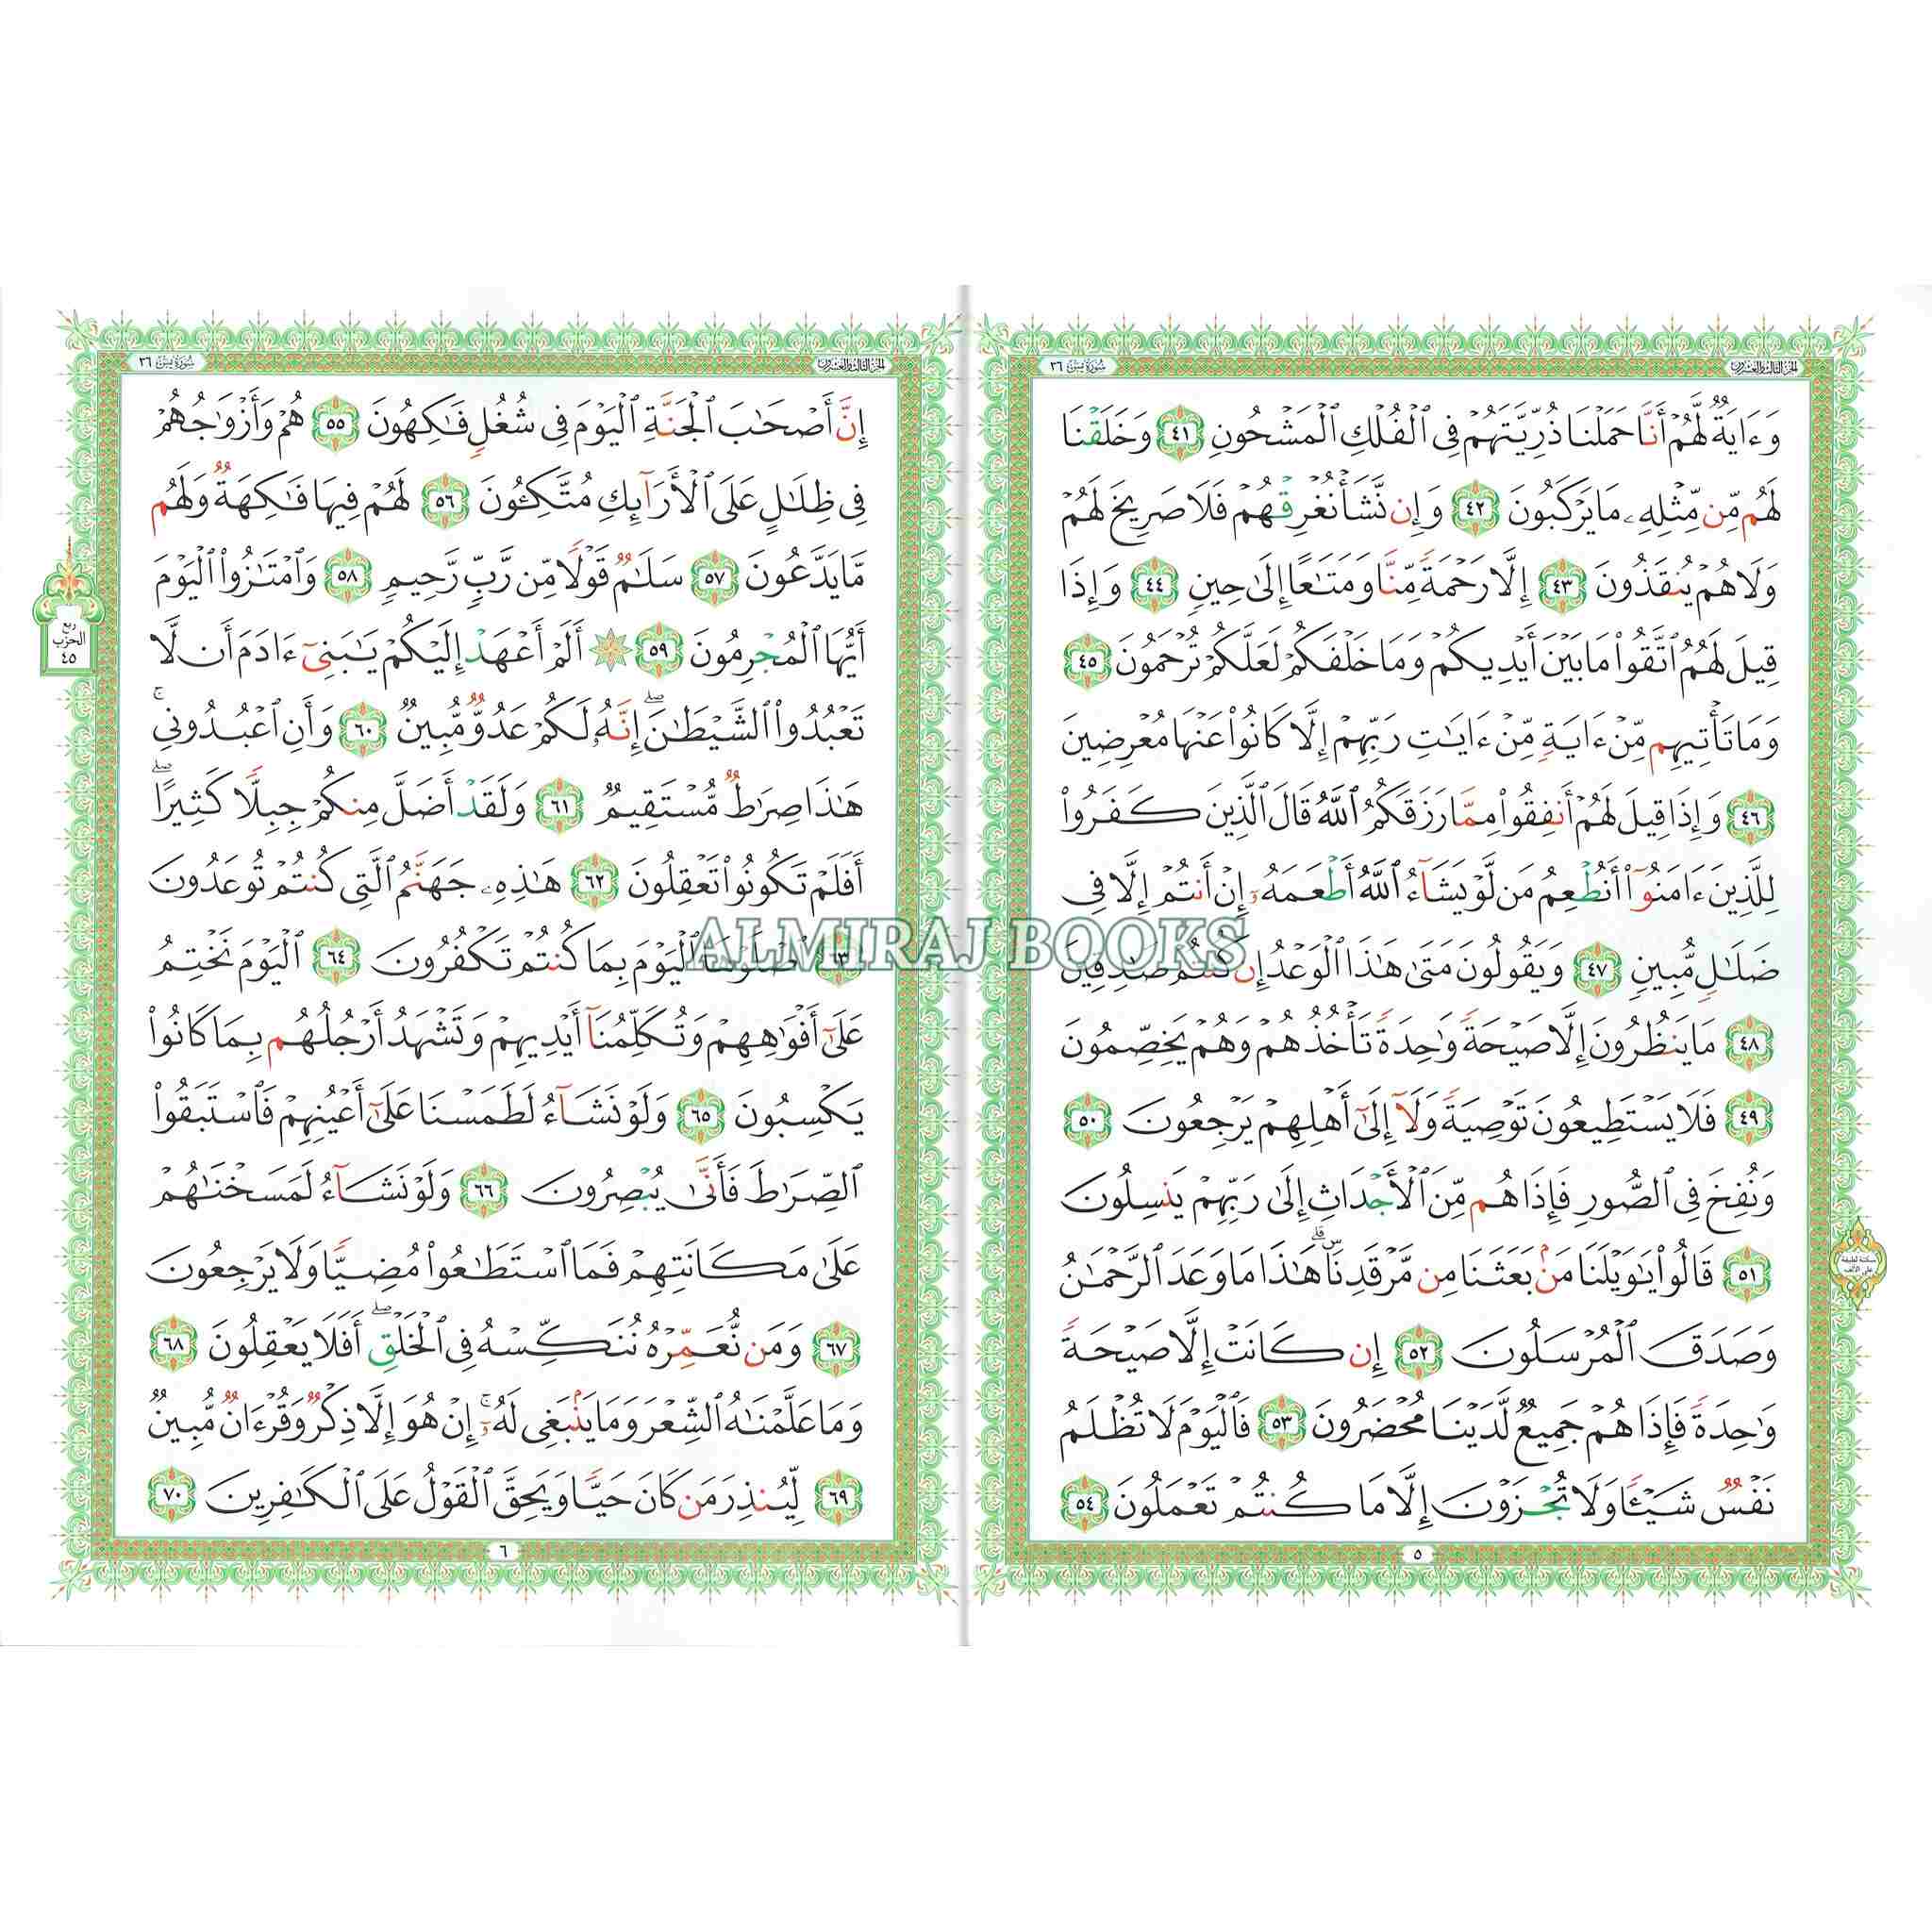 الجزء الثالث والعشرون
سورة يس ٣٦
وَءَايَةٌ لَّهُمْ أَنَّا حَمَلْنَا ذُرِّيَّتَهُمْ فِى ٱلْفُلْكِ ٱلْمَشْحُونِ ٤١ وَخَلَقْنَا
لَهُم مِّن مِّثْلِهِۦ مَا يَرْكَبُونَ ٤٢ وَإِن نَّشَأْ نُغْرِقْهُمْ فَلَا صَرِيخَ لَهُمْ
وَلَا هُمْ يُنقَذُونَ ٤٣ إِلَّا رَحْمَةً مِّنَّا وَمَتَٰعًا إِلَىٰ حِينٍ ٤٤ وَإِذَا
قِيلَ لَهُمُ ٱتَّقُوا۟ مَا بَيْنَ أَيْدِيكُمْ وَمَا خَلْفَكُمْ لَعَلَّكُمْ تُرْحَمُونَ ٤٥
وَمَا تَأْتِيهِم مِّنْ ءَايَةٍ مِّنْ ءَايَٰتِ رَبِّهِمْ إِلَّا كَانُوا۟ عَنْهَا مُعْرِضِينَ
٤٦ وَإِذَا قِيلَ لَهُمْ أَنفِقُوا۟ مِمَّا رَزَقَكُمُ ٱللَّهُ قَالَ ٱلَّذِينَ كَفَرُوا۟
لِلَّذِينَ ءَامَنُوٓا۟ أَنُطْعِمُ مَن لَّوْ يَشَآءُ ٱللَّهُ أَطْعَمَهُۥٓ إِنْ أَنتُمْ إِلَّا فِى
ضَلَٰلٍ مُّبِينٍ ٤٧ وَيَقُولُونَ مَتَىٰ هَٰذَا ٱلْوَعْدُ إِن كُنتُمْ صَٰدِقِينَ
٤٨ مَا يَنظُرُونَ إِلَّا صَيْحَةً وَٰحِدَةً تَأْخُذُهُمْ وَهُمْ يَخِصِّمُونَ
٤٩ فَلَا يَسْتَطِيعُونَ تَوْصِيَةً وَلَآ إِلَىٰٓ أَهْلِهِمْ يَرْجِعُونَ ٥٠
وَنُفِخَ فِى ٱلصُّورِ فَإِذَا هُم مِّنَ ٱلْأَجْدَاثِ إِلَىٰ رَبِّهِمْ يَنسِلُونَ
٥١ قَالُوا۟ يَٰوَيْلَنَا مَنۢ بَعَثَنَا مِن مَّرْقَدِنَاۜ ۗ هَٰذَا مَا وَعَدَ ٱلرَّحْمَٰنُ
وَصَدَقَ ٱلْمُرْسَلُونَ ٥٢ إِن كَانَتْ إِلَّا صَيْحَةً
وَٰحِدَةً فَإِذَا هُمْ جَمِيعٌ لَّدَيْنَا مُحْضَرُونَ ٥٣ فَٱلْيَوْمَ لَا تُظْلَمُ
نَفْسٌ شَيْـًٔا وَلَا تُجْزَوْنَ إِلَّا مَا كُنتُمْ تَعْمَلُونَ ٥٤
سكتة لطيفة
على الألف
٥
الجزء الثالث والعشرون
سورة يس ٣٦
إِنَّ أَصْحَٰبَ ٱلْجَنَّةِ ٱلْيَوْمَ فِى شُغُلٍ فَٰكِهُونَ ٥٥ هُمْ وَأَزْوَٰجُهُمْ
فِى ظِلَٰلٍ عَلَى ٱلْأَرَآئِكِ مُتَّكِـُٔونَ ٥٦ لَهُمْ فِيهَا فَٰكِهَةٌ وَلَهُم
مَّا يَدَّعُونَ ٥٧ سَلَٰمٌ قَوْلًا مِّن رَّبٍّ رَّحِيمٍ ٥٨ وَٱمْتَٰزُوا۟ ٱلْيَوْمَ
أَيُّهَا ٱلْمُجْرِمُونَ ٥٩ ۞ أَلَمْ أَعْهَدْ إِلَيْكُمْ يَٰبَنِىٓ ءَادَمَ أَن لَّا
تَعْبُدُوا۟ ٱلشَّيْطَٰنَ ۖ إِنَّهُۥ لَكُمْ عَدُوٌّ مُّبِينٌ ٦٠ وَأَنِ ٱعْبُدُونِى ۚ
هَٰذَا صِرَٰطٌ مُّسْتَقِيمٌ ٦١ وَلَقَدْ أَضَلَّ مِنكُمْ جِبِلًّا كَثِيرًا ۖ
أَفَلَمْ تَكُونُوا۟ تَعْقِلُونَ ٦٢ هَٰذِهِۦ جَهَنَّمُ ٱلَّتِى كُنتُمْ تُوعَدُونَ
٦٣ ٱصْلَوْهَا ٱلْيَوْمَ بِمَا كُنتُمْ تَكْفُرُونَ ٦٤ ٱلْيَوْمَ نَخْتِمُ
عَلَىٰٓ أَفْوَٰهِهِمْ وَتُكَلِّمُنَآ أَيْدِيهِمْ وَتَشْهَدُ أَرْجُلُهُم بِمَا كَانُوا۟
يَكْسِبُونَ ٦٥ وَلَوْ نَشَآءُ لَطَمَسْنَا عَلَىٰٓ أَعْيُنِهِمْ فَٱسْتَبَقُوا۟
ٱلصِّرَٰطَ فَأَنَّىٰ يُبْصِرُونَ ٦٦ وَلَوْ نَشَآءُ لَمَسَخْنَٰهُمْ
عَلَىٰ مَكَانَتِهِمْ فَمَا ٱسْتَطَٰعُوا۟ مُضِيًّا وَلَا يَرْجِعُونَ
٦٧ وَمَن نُّعَمِّرْهُ نُنَكِّسْهُ فِى ٱلْخَلْقِ ۖ أَفَلَا يَعْقِلُونَ ٦٨
وَمَا عَلَّمْنَٰهُ ٱلشِّعْرَ وَمَا يَنۢبَغِى لَهُۥٓ ۚ إِنْ هُوَ إِلَّا ذِكْرٌ وَقُرْءَانٌ مُّبِينٌ
٦٩ لِّيُنذِرَ مَن كَانَ حَيًّا وَيَحِقَّ ٱلْقَوْلُ عَلَى ٱلْكَٰفِرِينَ ٧٠
ربع
الحزب
٤٥
٦
ALMIRAJ BOOKS